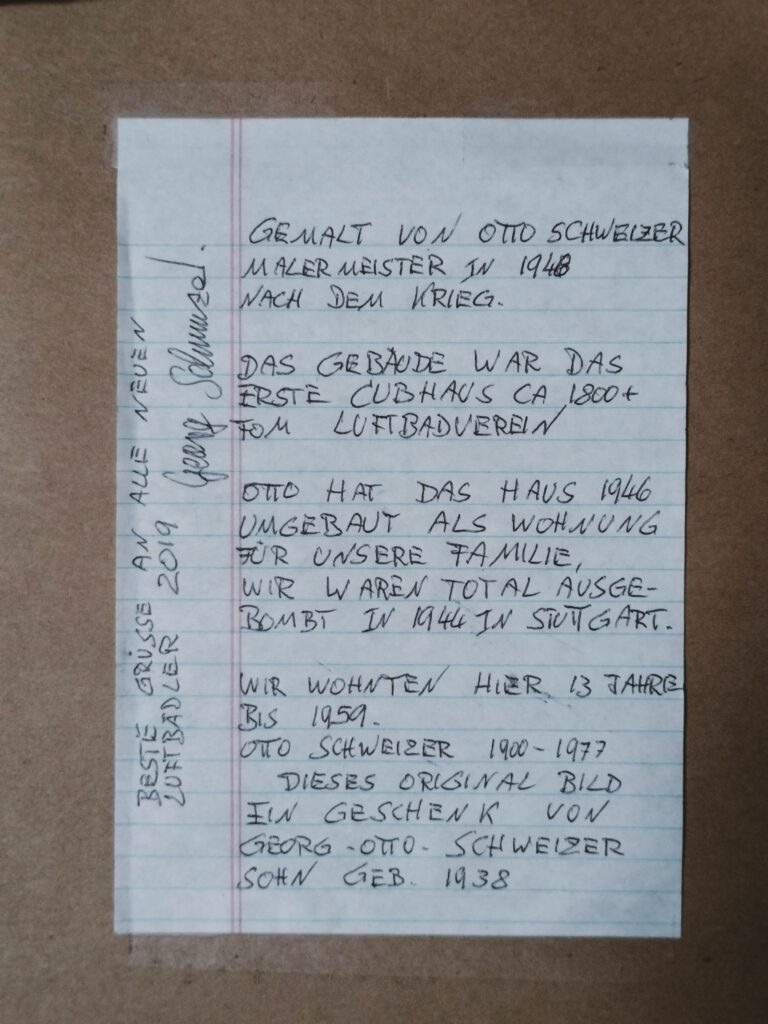 GEMALT VON OTTO SCHWEIZER
MALERMEISTER IN 1948
NACH DEM KRIEG.
DAS GEBÄUDE WAR DAS
ERSTE CUBHAUS CA 1800+
FOM LUFTBADVEREIN
OTTO HAT DAS HAUS 1946
UMGEBAUT ALS WOHNUNG
FÜR UNSERE FAMILIE,
WIR WAREN TOTAL AUSGE-
BOMBT IN 1944 IN STUTTGART.
WIR WOHNTEN HIER 13 JAHRE
BIS 1959.
OTTO SCHWEIZER 1900-1977
DIESES ORIGINAL BILD
EIN GESCHENK VON
GEORG-OTTO-SCHWEIZER
SOHN GEB. 1938
BESTE GRÜSSE AN ALLE NEUEN
LUFTBÄDLER 2019
Georg